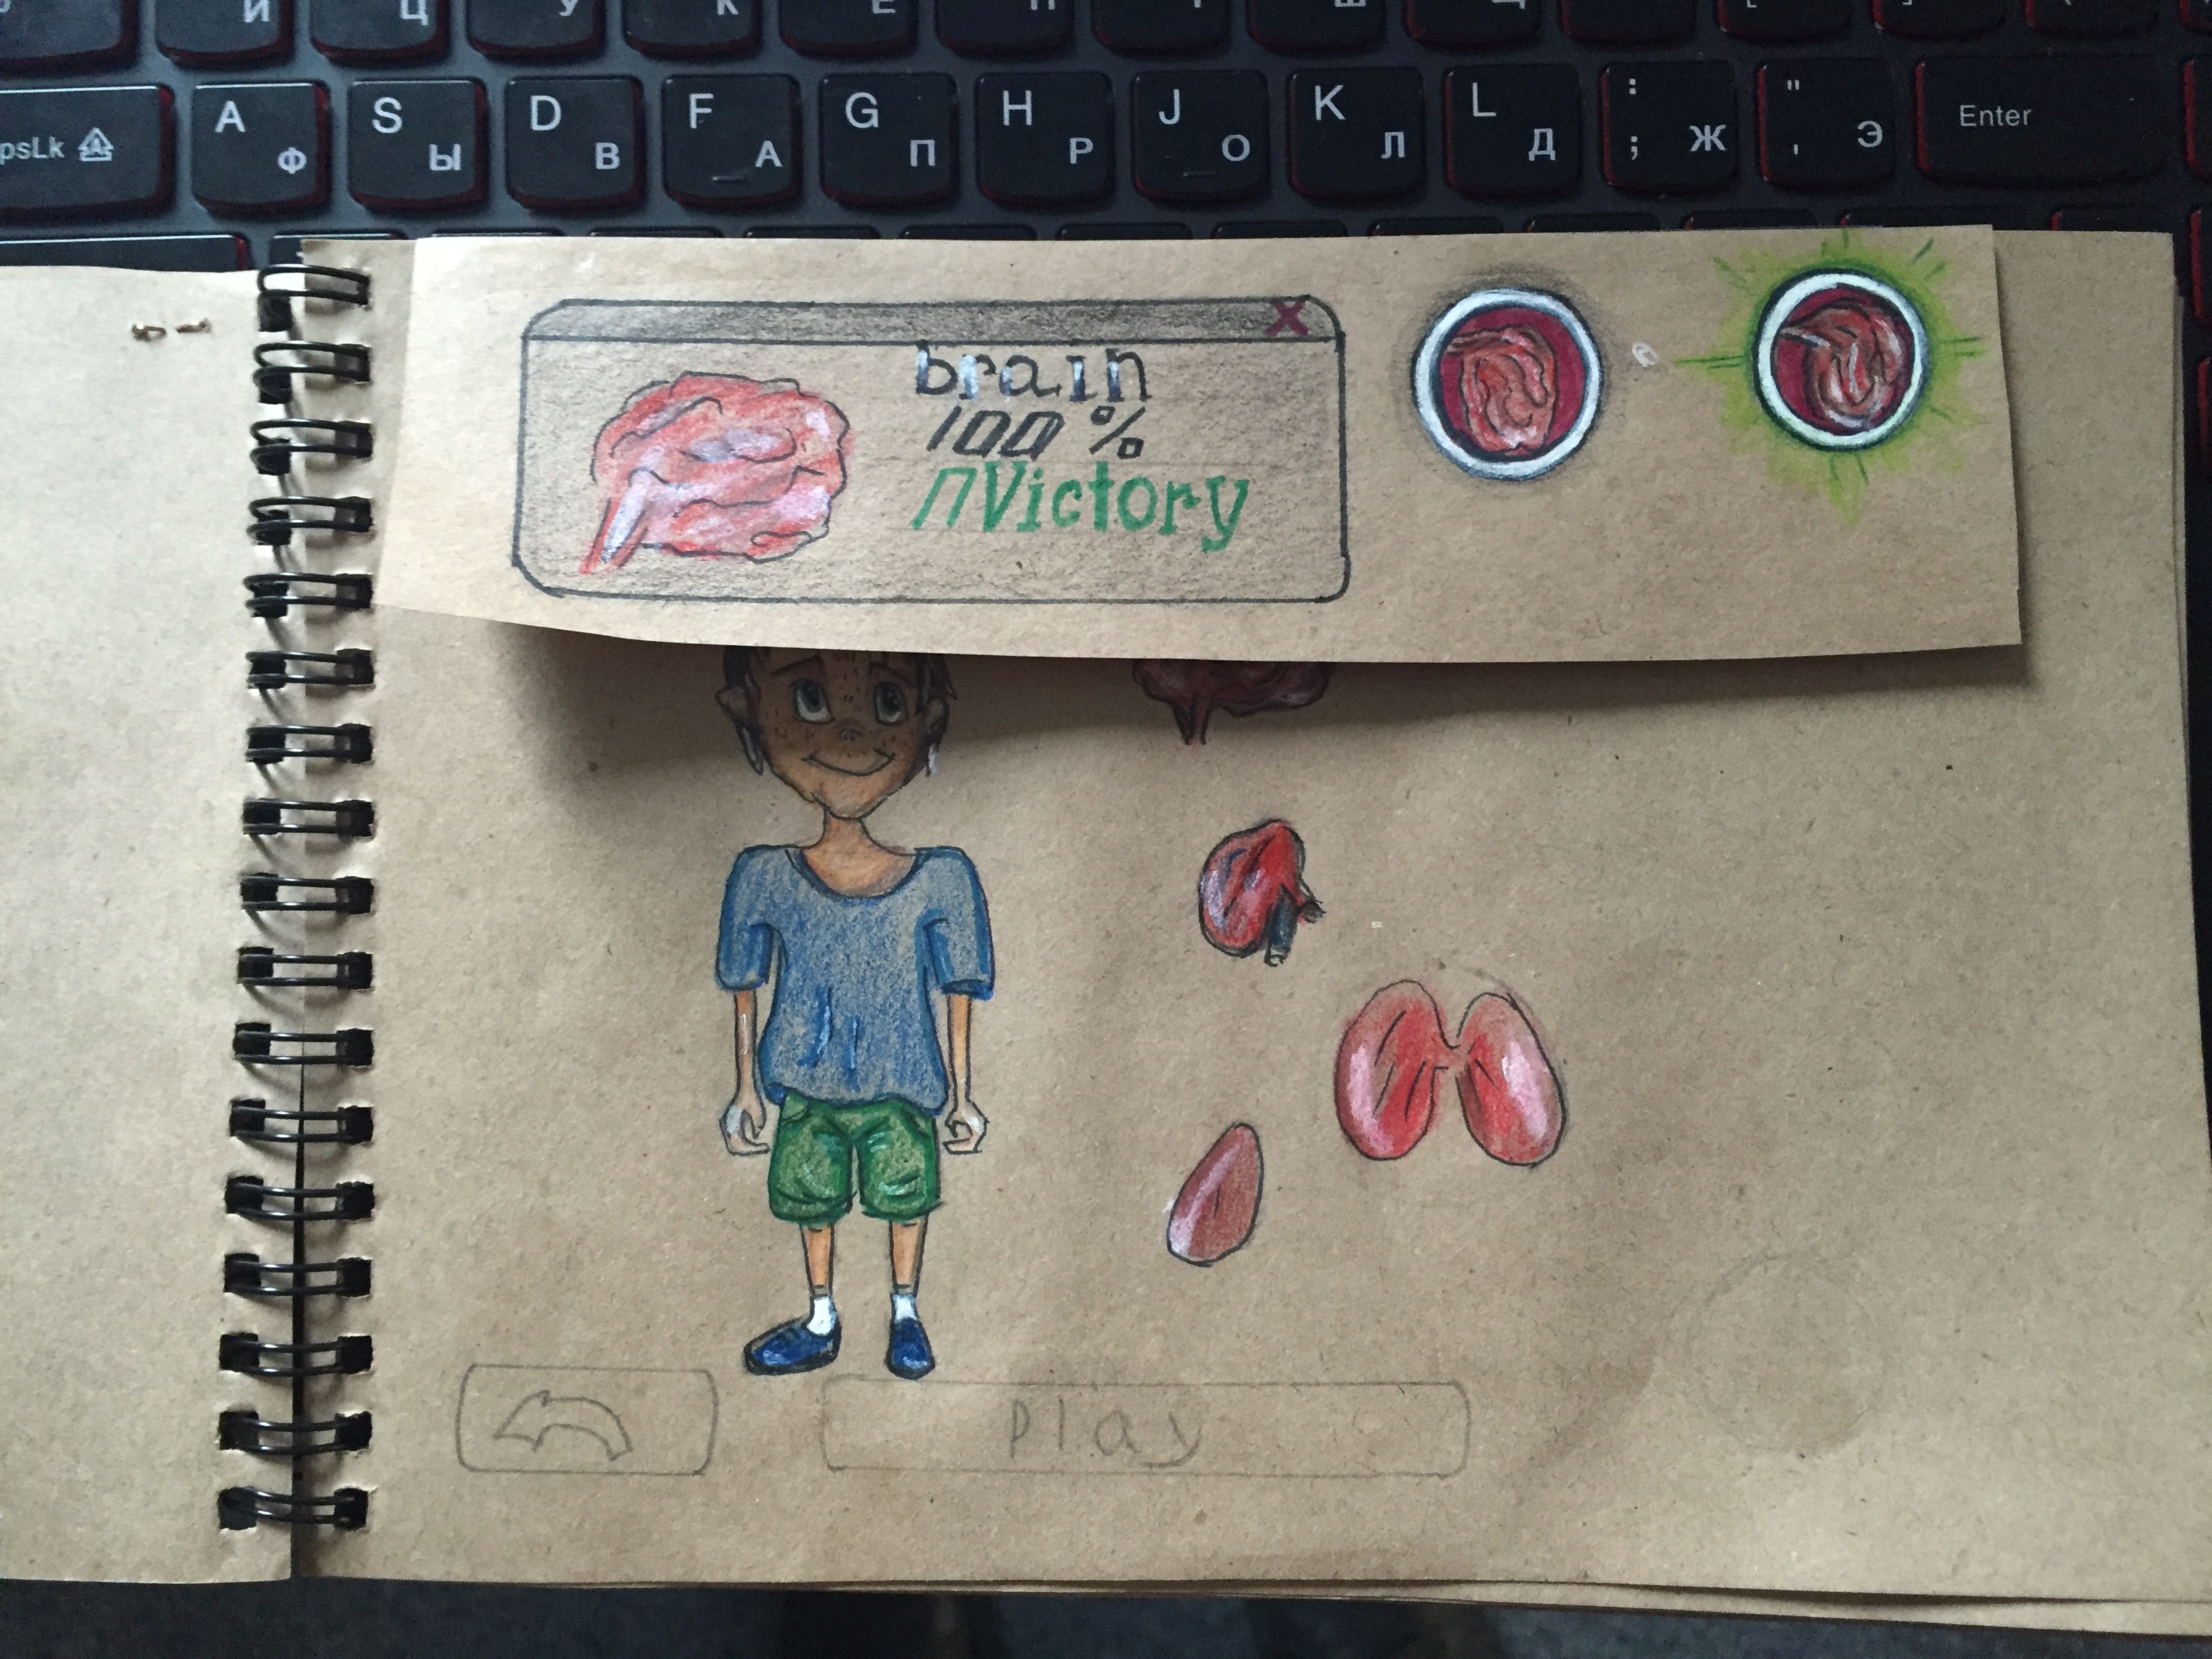 И Ц У К Е Н Г Ш Щ
psLk A Ф S Ы D В F А G П H Р J О K Л L Д : ; Ж " ' Э Enter
brain
100 %
ПVictory
play